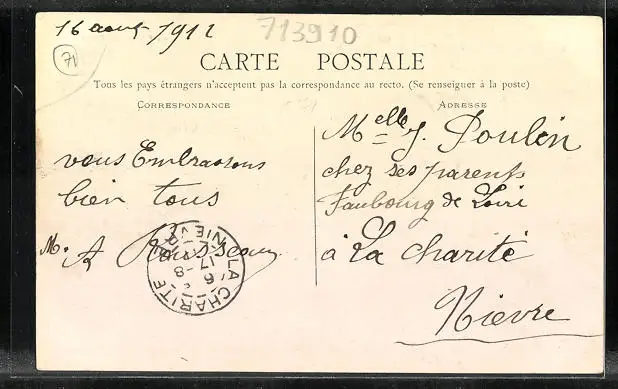 16 aout 1912
713910
71
CARTE POSTALE
Tous les pays étrangers n'acceptent pas la correspondance au recto. (Se renseigner à la poste)
CORRESPONDANCE
ADRESSE
vous Embrassons
bien tous
M. A Rousseau
LA CHARITE
NIEVRE
6
17 -8
Melle J. Poulin
chez ses parents
Faubourg de Loire
à La Charité
Nièvre